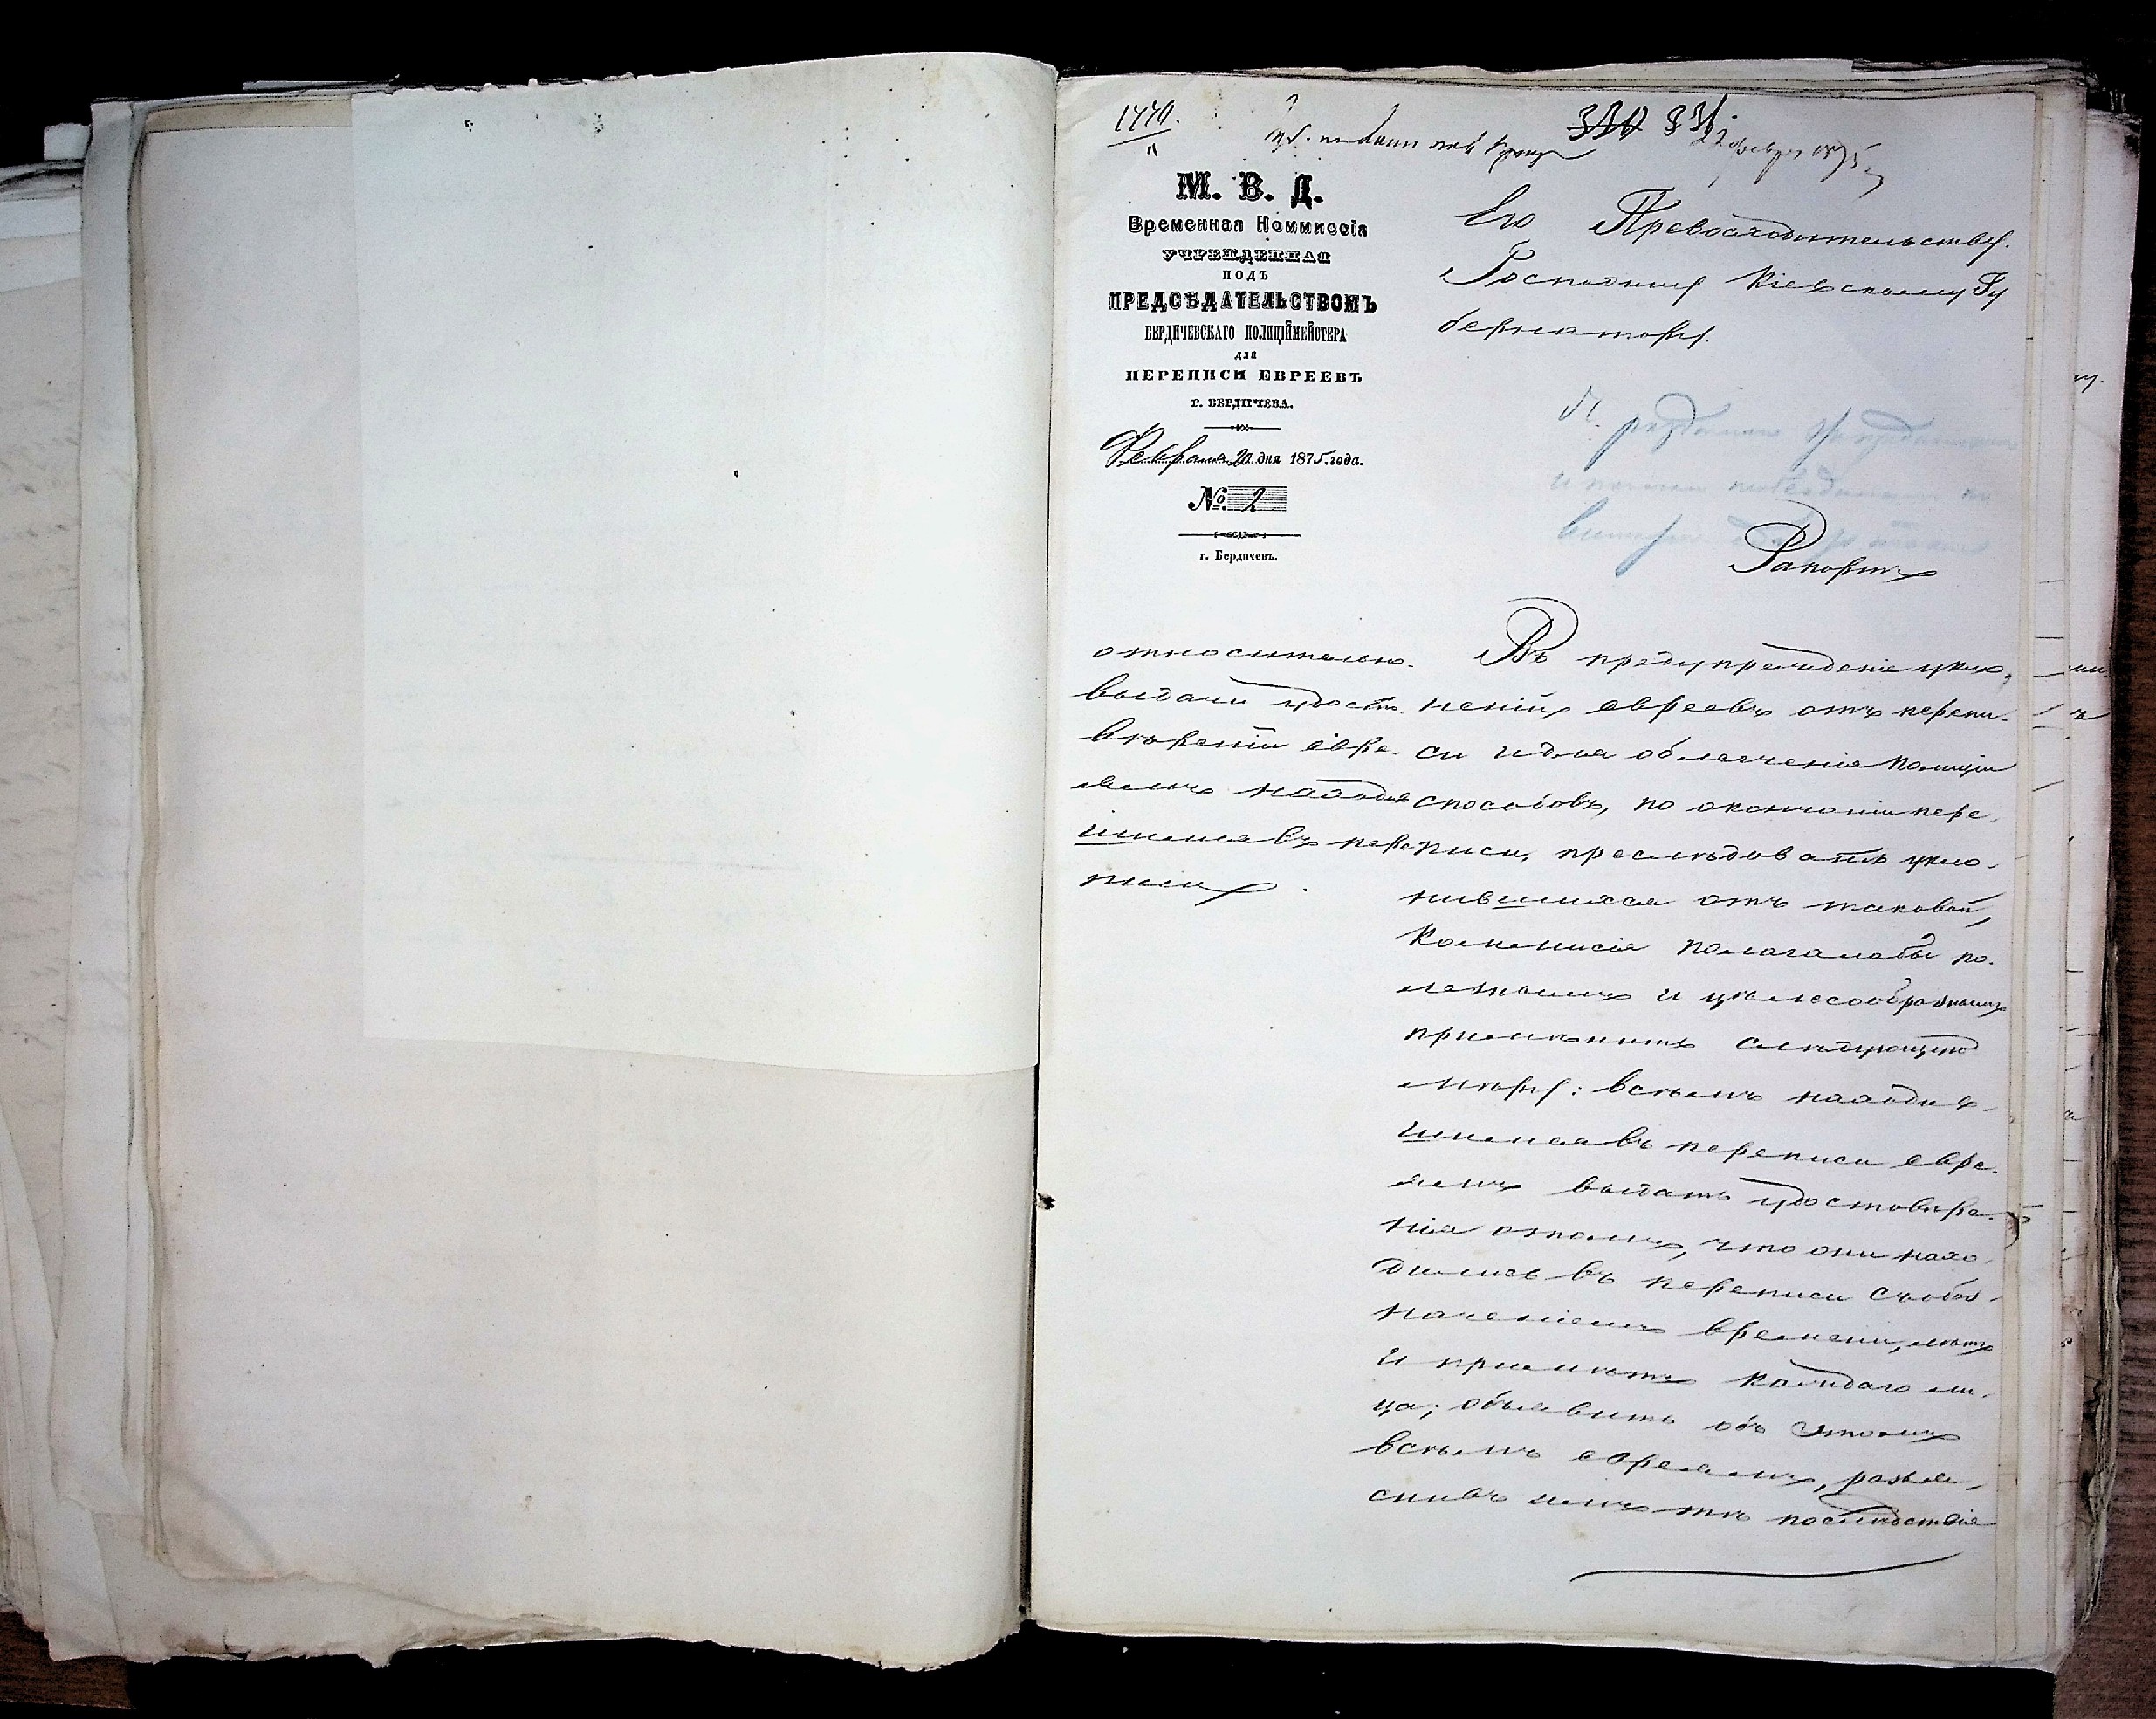 1770.
330 331
22 февр 1875
М. В. Д.
Временная Коммиссія
УЧРЕЖДЕННАЯ
ПОДЪ
ПРЕДСѢДАТЕЛЬСТВОМЪ
БЕРДИЧЕВСКАГО ПОЛИЦІЙМЕЙСТЕРА
ДЛЯ
ПЕРЕПИСИ ЕВРЕЕВЪ
Г. БЕРДИЧЕВА.
Февраля 20 дня 1875 года.
№ 2
г. Бердичевъ.
Его Превосходительству
Господину Кіевскому Гу
бернатору.
Рапортъ
относительно
выдачи удосто-
вѣреній евре-
ямъ находив
шимся въ пере
писи
Въ предупрежденіе укло-
неній евреевъ отъ перепи-
си и для облегченія полиціи
способовъ, по окончаніи пере-
писи, преслѣдовать укло-
нившихся отъ таковой,
Коммисія полагала бы по-
лезнымъ и цѣлесообразнымъ
примѣнить слѣдующую
мѣру: всѣмъ находив-
шимся въ переписи евре-
ямъ выдать удостовѣре-
нія о томъ, что они нахо-
дились въ переписи съ обоз-
наченіемъ времени, лѣтъ
и примѣтъ каждаго ли-
ца; объявить объ этомъ
всѣмъ евреямъ, разъя-
снивъ имъ тѣ послѣдствія